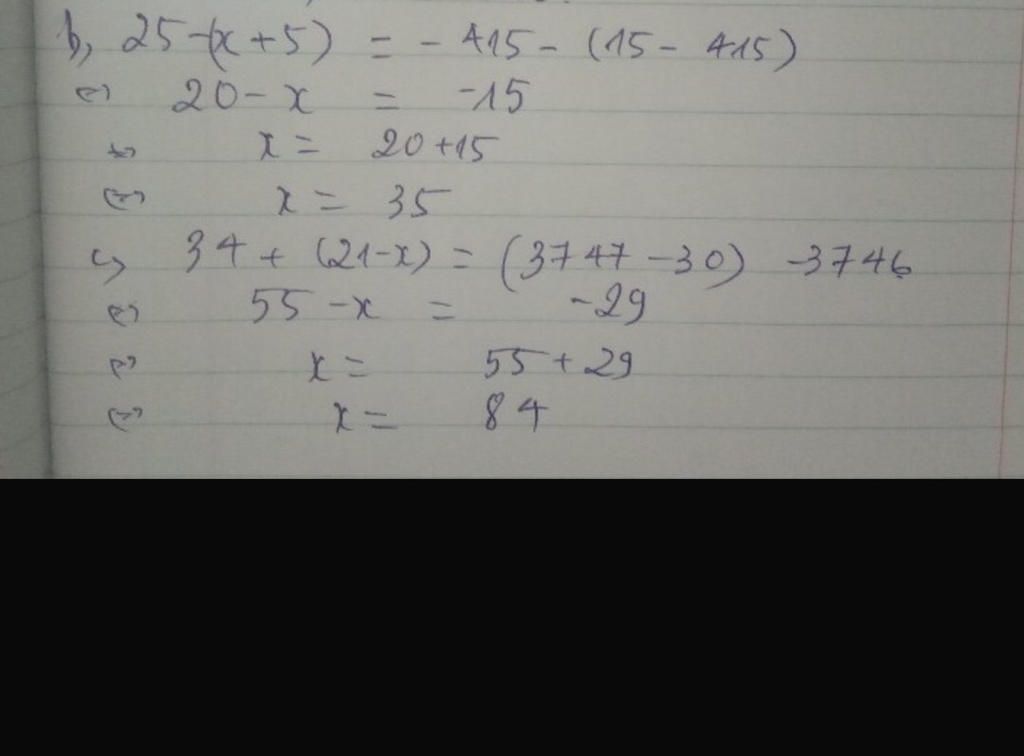 b, 25-(x+5) = - 415 - (15 - 415)
⇔ 20 - x = -15
⇔ x = 20 + 15
⇔ x = 35
c, 34 + (21-x) = (3747 - 30) - 3746
⇔ 55 - x = -29
⇔ x = 55 + 29
⇔ x = 84